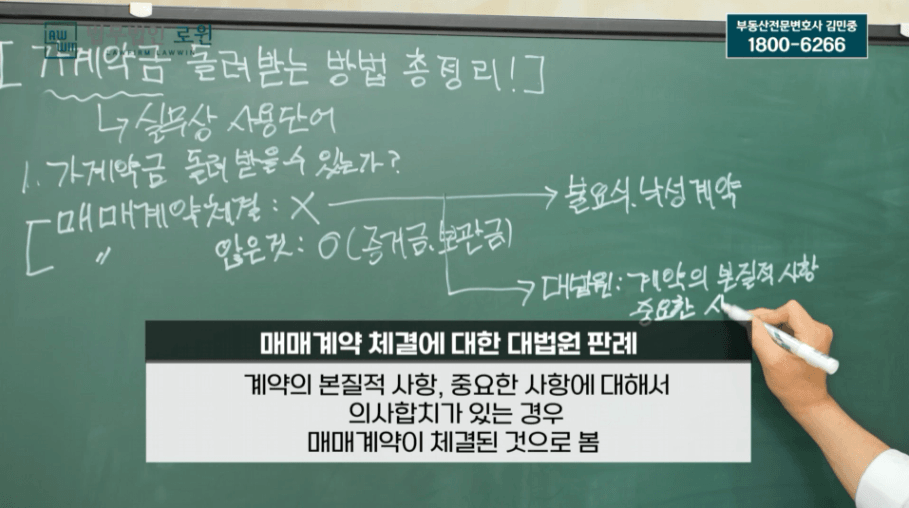 법무법인 로윈
LAWFIRM LAWWIN
부동산전문변호사 김민중
1800-6266
[ 가계약금 돌려받는 방법 총정리! ]
↳ 실무상 사용단어
1. 가계약금 돌려받을 수 있는가?
매매계약체결 : X → 불요식. 낙성계약
〃 않은것 : O (증거금. 보관금)
→ 대법원 : 계약의 본질적 사항
중요한 사
매매계약 체결에 대한 대법원 판례
계약의 본질적 사항, 중요한 사항에 대해서
의사합치가 있는 경우
매매계약이 체결된 것으로 봄